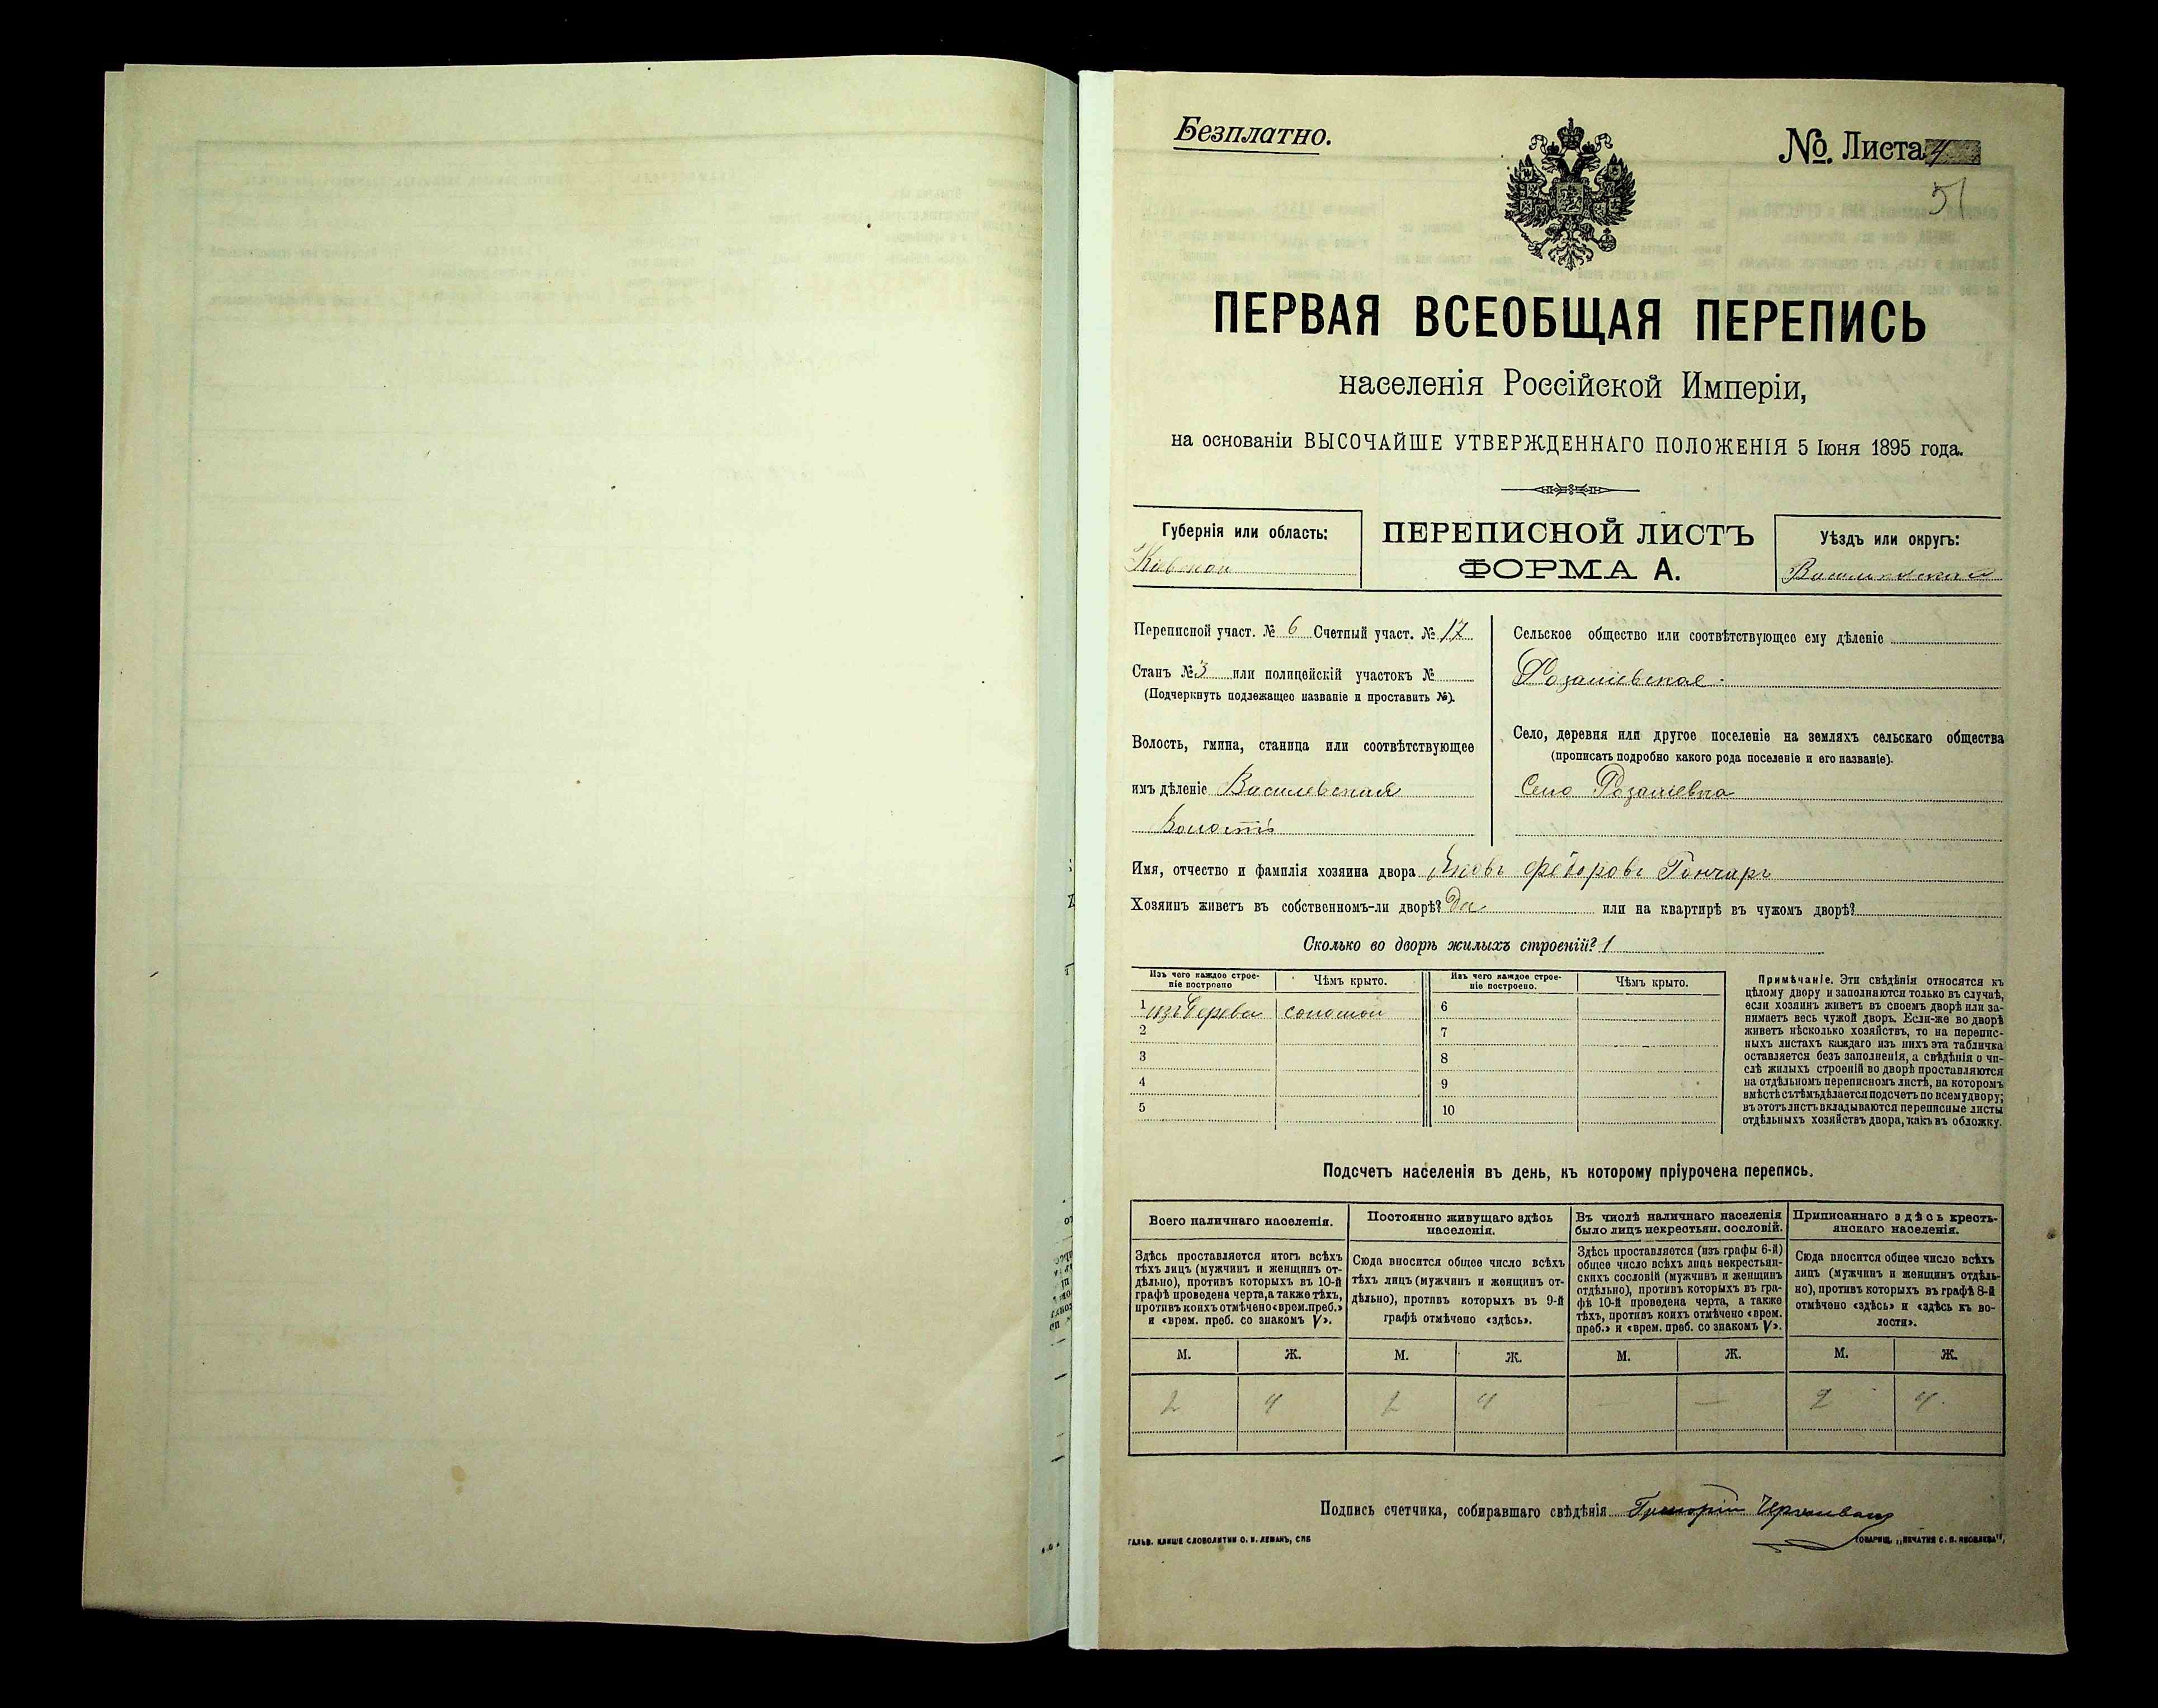 Безплатно.
№. Листа 4
51
ПЕРВАЯ ВСЕОБЩАЯ ПЕРЕПИСЬ
населенія Россійской Имперіи,
на основаніи ВЫСОЧАЙШЕ УТВЕРЖДЕННАГО ПОЛОЖЕНІЯ 5 Іюня 1895 года.
Губернія или область:
Кіевской
ПЕРЕПИСНОЙ ЛИСТЪ
ФОРМА А.
Уѣздъ или округъ:
Переписной участ. № 6 Счетный участ. № 17
Станъ № 3 или полицейскій участокъ №
(Подчеркнуть подлежащее названіе и проставить №).
Волость, гмина, станица или соотвѣтствующее
имъ дѣленіе Василевская
Волость
Сельское общество или соотвѣтствующее ему дѣленіе
Розаліевское.
Село, деревня или другое поселеніе на земляхъ сельскаго общества
(прописать подробно какого рода поселеніе и его названіе).
Село Розаліевка
Имя, отчество и фамилія хозяина двора Яковъ Федоровъ Гончаръ
Хозяинъ живетъ въ собственномъ-ли дворѣ? Да или на квартирѣ въ чужомъ дворѣ?
Сколько во дворѣ жилыхъ строеній? 1
Изъ чего каждое строе-
ніе построено
Чѣмъ крыто.
Изъ чего каждое строе-
ніе построено.
Чѣмъ крыто.
1 изъ дерева соломой 6
2 7
3 8
4 9
5 10
Примѣчаніе. Эти свѣдѣнія относятся къ
цѣлому двору и заполняются только въ случаѣ,
если хозяинъ живетъ въ своемъ дворѣ или за-
нимаетъ весь чужой дворъ. Если-же во дворѣ
живетъ нѣсколько хозяйствъ, то на перепис-
ныхъ листахъ каждаго изъ нихъ эта табличка
оставляется безъ заполненія, а свѣдѣнія о чи-
слѣ жилыхъ строеній во дворѣ проставляются
на отдѣльномъ переписномъ листѣ, на которомъ
вмѣстѣ съ тѣмъ дѣлается подсчетъ по всему двору;
въ этотъ листъ вкладываются переписные листы
отдѣльныхъ хозяйствъ двора, какъ въ обложку.
Подсчетъ населенія въ день, къ которому пріурочена перепись.
Всего наличнаго населенія.
Здѣсь проставляется итогъ всѣхъ
тѣхъ лицъ (мужчинъ и женщинъ от-
дѣльно), противъ которыхъ въ 10-й
графѣ проведена черта, а также тѣхъ,
противъ коихъ отмѣчено «врем. преб.»
и «врем. преб. со знакомъ V».
Постоянно живущаго здѣсь
населенія.
Сюда вносится общее число всѣхъ
тѣхъ лицъ (мужчинъ и женщинъ от-
дѣльно), противъ которыхъ въ 9-й
графѣ отмѣчено «здѣсь».
Въ числѣ наличнаго населенія
было лицъ некрестьян. сословій.
Здѣсь проставляется (изъ графы 6-й)
общее число всѣхъ лицъ некрестьян-
скихъ сословій (мужчинъ и женщинъ
отдѣльно), противъ которыхъ въ гра-
фѣ 10-й проведена черта, а также
тѣхъ, противъ коихъ отмѣчено «врем.
преб.» и «врем. преб. со знакомъ V».
Приписаннаго здѣсь кресть-
янскаго населенія.
Сюда вносится общее число всѣхъ
лицъ (мужчинъ и женщинъ отдѣль-
но), противъ которыхъ въ графѣ 8-й
отмѣчено «здѣсь» и «здѣсь къ во-
лости».
М. Ж. М. Ж. М. Ж. М. Ж.
2 4 2 4 — — 2 4
Подпись счетчика, собиравшаго свѣдѣнія Григорій
ГАЛЬВ. КЛИШЕ СЛОВОЛИТНИ О. И. ЛЕМАНЪ, СПБ
ТОВАРИЩ. „ПЕЧАТНЯ С. П. ЯКОВЛЕВА".